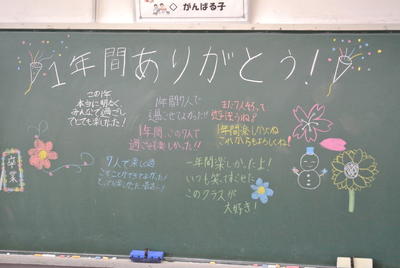 ◇がんばる子
1年間ありがとう!
この1年
本当に明るく、
みんなで過ごし
とても楽しかった!
1年間7人で
過ごせてよかった!!
また7人そろって
遊ぼうね!
1年間、この7人で
過ごせて楽しかった!!
1年間楽しかったよね
これからもよろしくね!
7人で楽しく過
ごすことができてよかった!
一年間楽しかったよ!
いつも笑ってすごせた
このクラスが
大好き!
卒業